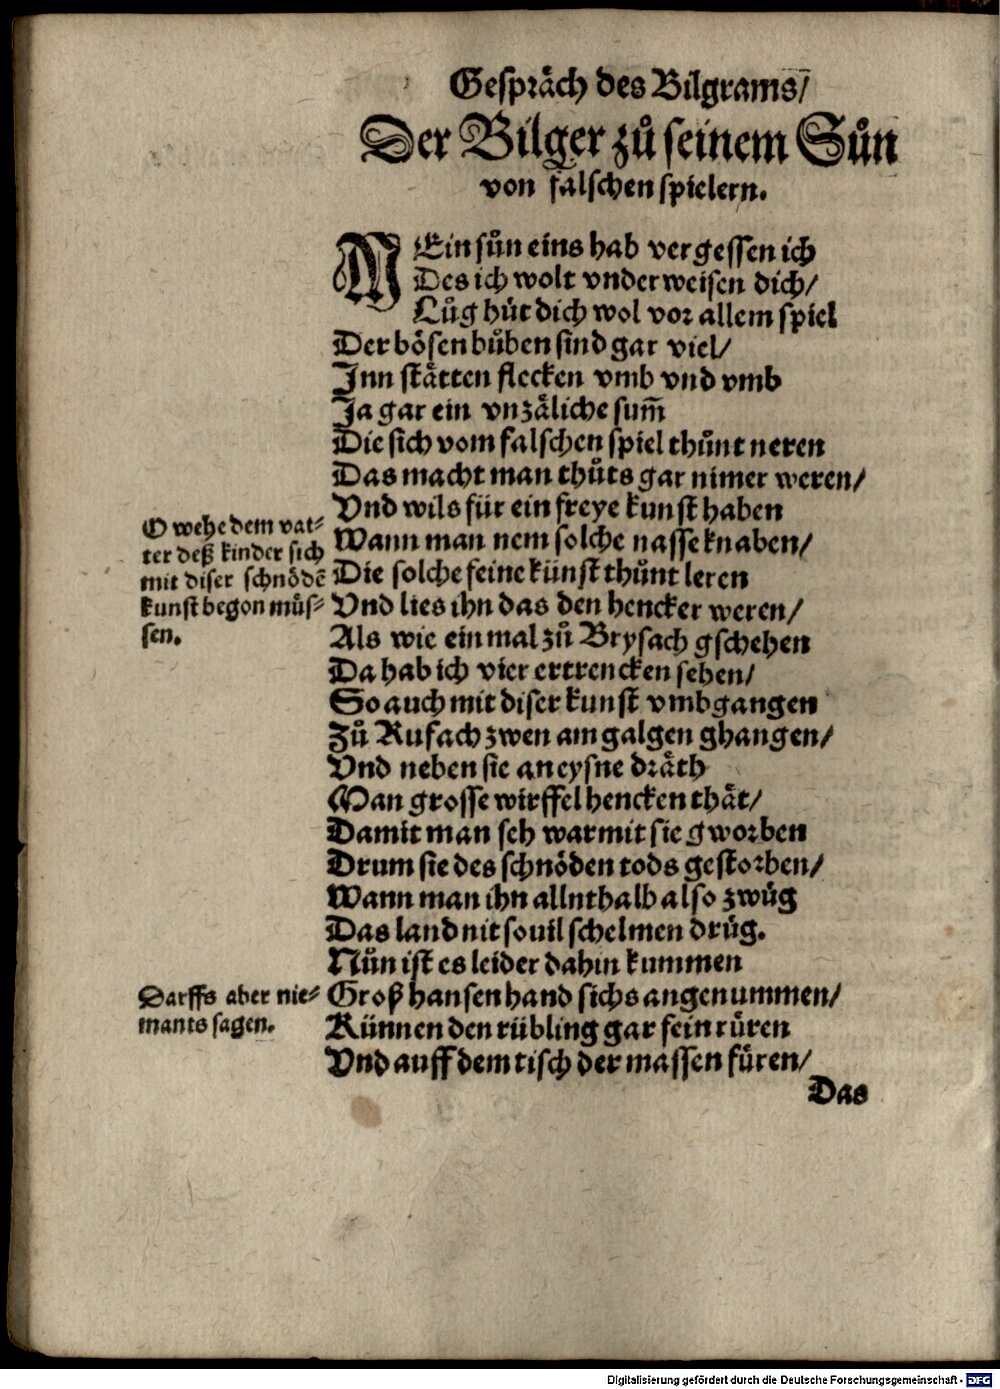 Gespräch des Bilgrams/
Der Bilger zů seinem Sůn
von falschen spielern.
MEin sůn eins hab vergessen ich
Des ich wolt vnderweisen dich/
Lůg hüt dich wol vor allem spiel
Der bösen bůben sind gar viel/
Inn stätten flecken vmb vnd vmb
Ja gar ein vnzäliche sum̄
Die sich vom falschen spiel thůnt neren
Das macht man thůts gar nimer weren/
Vnd wils für ein freye kunst haben
Wann man nem solche nasse knaben/
Die solche feine künst thůnt leren
Vnd lies ihn das den hencker weren/
Als wie ein mal zů Brysach gschehen
Da hab ich vier ertrencken sehen/
So auch mit diser kunst vmbgangen
Zů Rufach zwen am galgen ghangen/
Vnd neben sie an eysne dräth
Man grosse wirffel hencken thät/
Damit man seh warmit sie gworben
Drum sie des schnöden tods gestorben/
Wann man ihn allnthalb also zwůg
Das land nit souil schelmen drůg.
Nůn ist es leider dahin kummen
Groß hansen hand sichs angenummen/
Künnen den rübling gar fein rüren
Vnd auff dem tisch der massen füren/
Das
O wehe dem vat⸗
ter deß kinder sich
mit diser schnödē
kunst begon müs⸗
sen.
Darffs aber nie⸗
mants sagen.
Digitalisierung gefördert durch die Deutsche Forschungsgemeinschaft - DFG